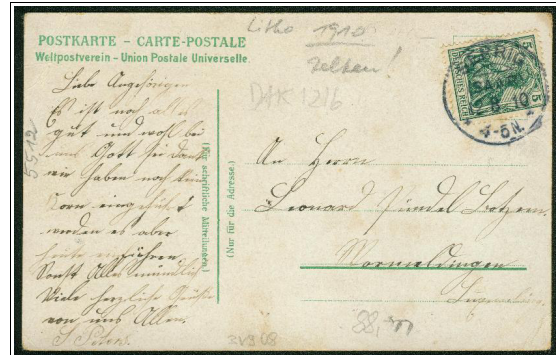 Litho 1910
selten!
DAK 1216
POSTKARTE – CARTE-POSTALE
Weltpostverein – Union Postale Universelle.
5 DEUTSCHES REICH 5
10
4-5N.
5512
Liebe Angehörigen
Es ist noch alles
gut und wohl bei
uns Gott sei dank
wir haben noch kein
Korn eingeführt
werden es aber
heute einführen
Sonst Alles mündlich
Viele herzliche Grüße
von uns Allen.
(Für schriftliche Mitteilungen.)
(Nur für die Adresse.)
An Herrn
Leonard
Wormeldingen
88,-